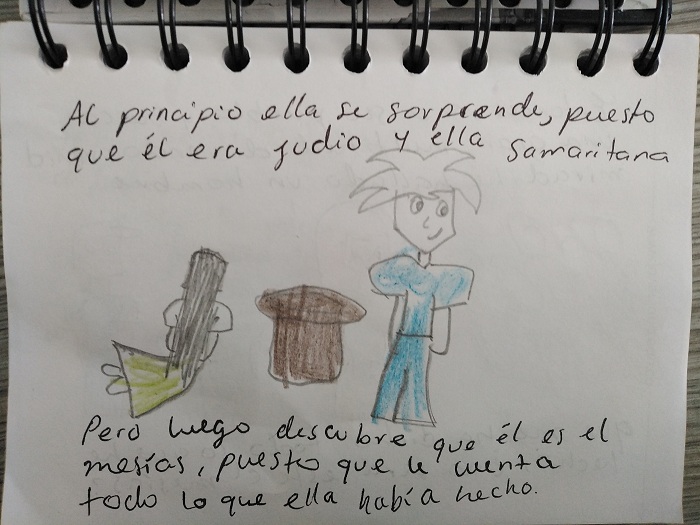 Al principio ella se sorprende, puesto
que él era judio y ella Samaritana
Pero luego descubre que él es el
mesías, puesto que le cuenta
todo lo que ella había hecho.